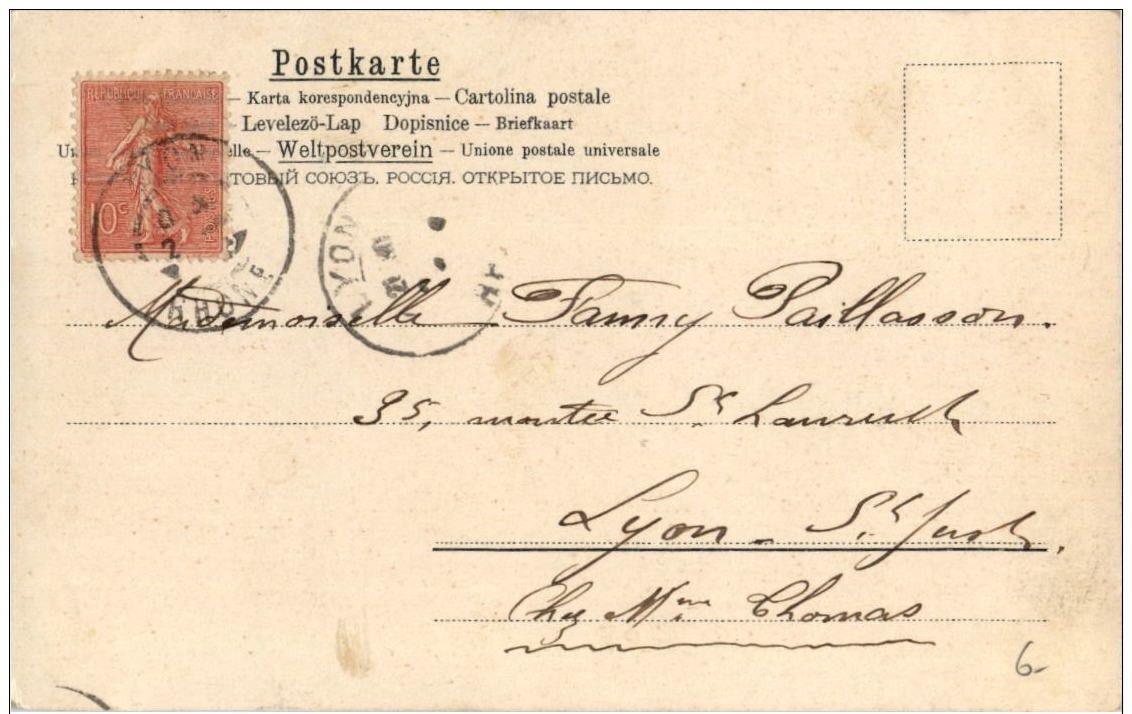 Postkarte
RÉPUBLIQUE FRANÇAISE
— Karta korespondencyjna — Cartolina postale
— Levelezö-Lap Dopisnice — Briefkaart
elle — Weltpostverein — Unione postale universale
ТОВЫЙ СОЮЗЪ. РОССІЯ. ОТКРЫТОЕ ПИСЬМО.
10c
LYON
RHONE
LYON
Mademoiselle Fanny Paillasson.
35, montée St Laurent
Lyon - St Just,
Chez Mme Thomas
6-